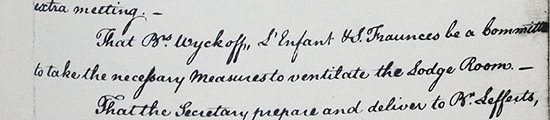 extra meeting. —
That Brs Wyckoff, L'Enfant & S. Fraunces be a Committee
to take the necessary Measures to ventilate the Lodge Room. —
That the Secretary prepare and deliver to Br. Lefferts,